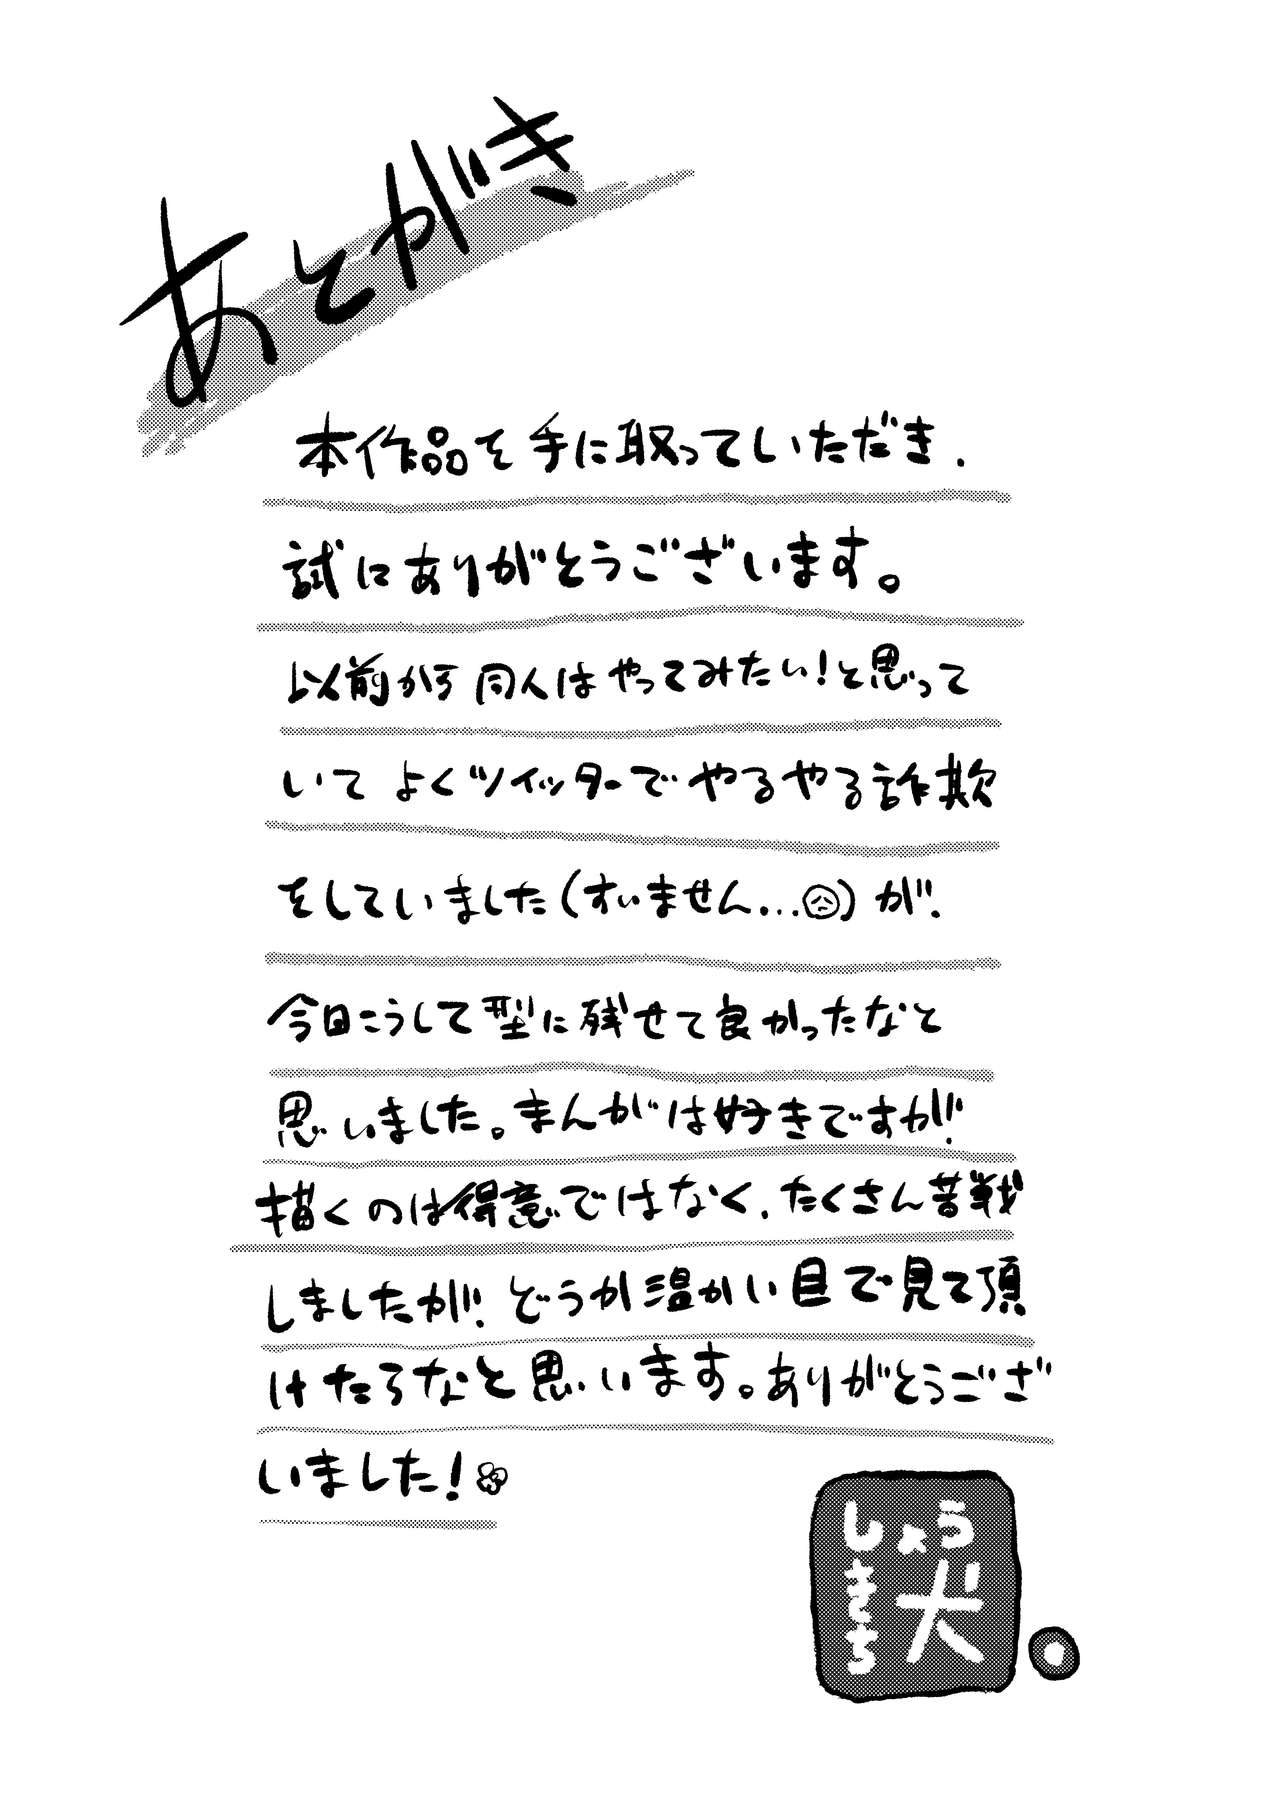 あとがき
本作品を手に取っていただき、
試にありがとうございます。
以前から同人はやってみたい！と思って
いて よくツイッターでやるやる詐欺
をしていました(すいません...)が、
今回こうして型に残せて良かったなと
思いました。まんがは好きですが、
描くのは得意ではなく、たくさん苦戦
しましたが、どうか温かい目で見て頂
けたらなと思います。ありがとうござ
いました！
しょう
犬
きち